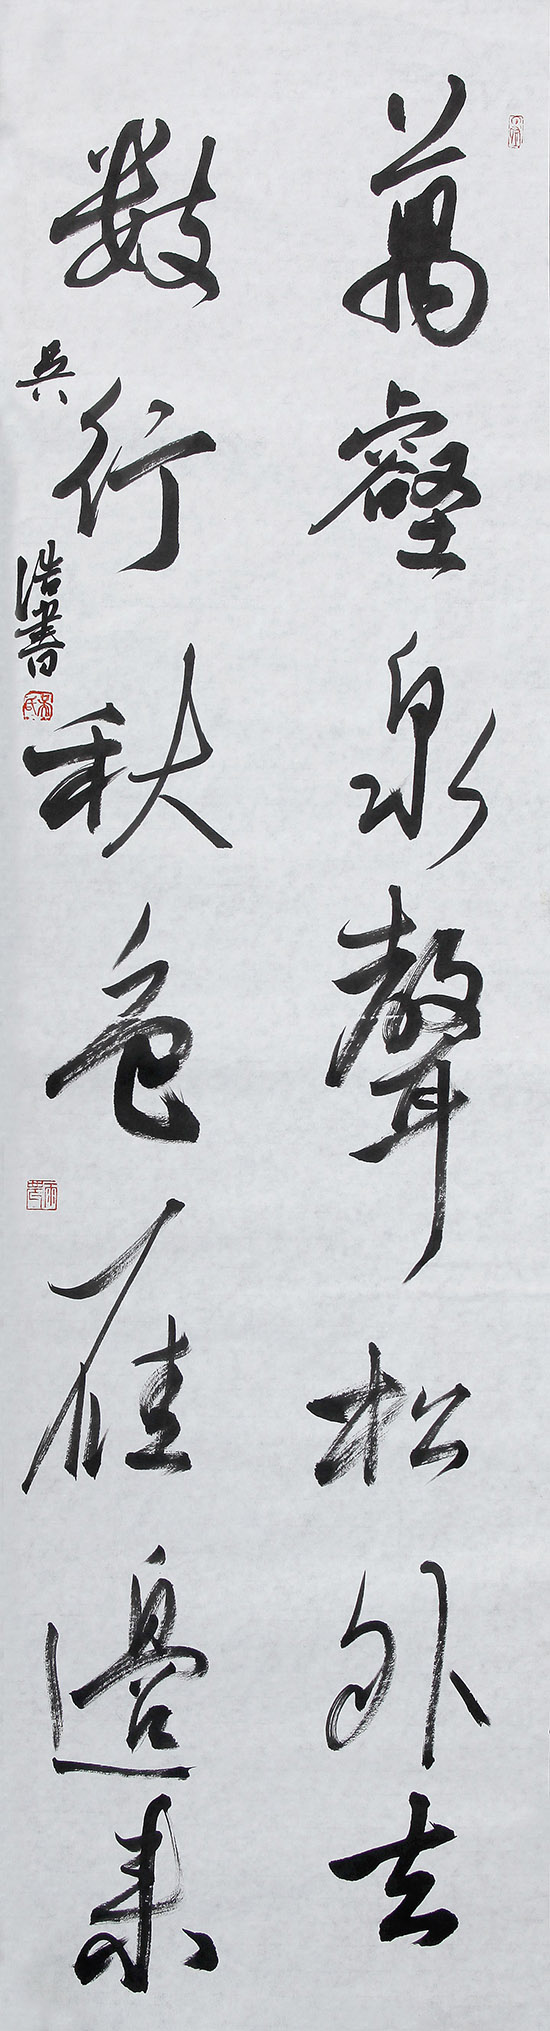 萬壑泉聲松外去
數行秋色雁邊來
吳浩書